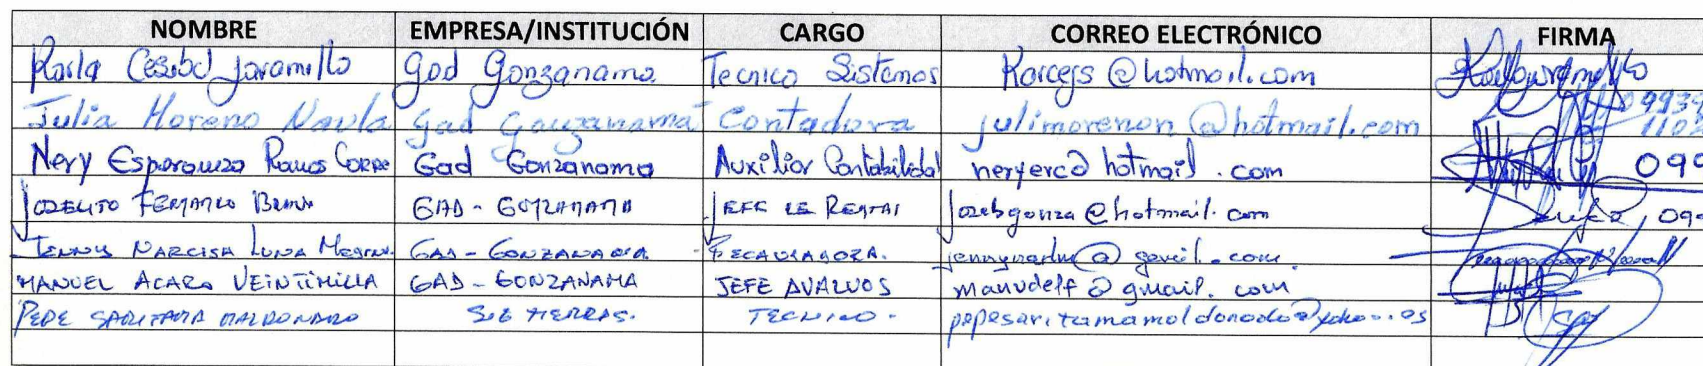 NOMBRE EMPRESA/INSTITUCIÓN CARGO CORREO ELECTRÓNICO FIRMA
Karla Jaramillo Gad Gonzanama Tecnico Sistemas Karcejs@hotmail.com
Julia Moreno Naula Gad Gonzanamá Contadora julimorenon@hotmail.com 0993
Nery Esperanza Ramos Gad Gonzanama Auxiliar Contabilidad neryerc@hotmail.com 099
JOZELITO FERNANDO GAD-GONZANAMA JEFE DE RENTAS jozebgonza@hotmail.com 099
JENNY NARCISA LUNA GAD-GONZANAMA RECAUDADORA.
MANUEL ACARO VEINTIMILLA GAD-GONZANAMA JEFE AVALUOS manudelf@gmail.com
PEPE SARITAMA MALDONADO TIERRAS. TECNICO-